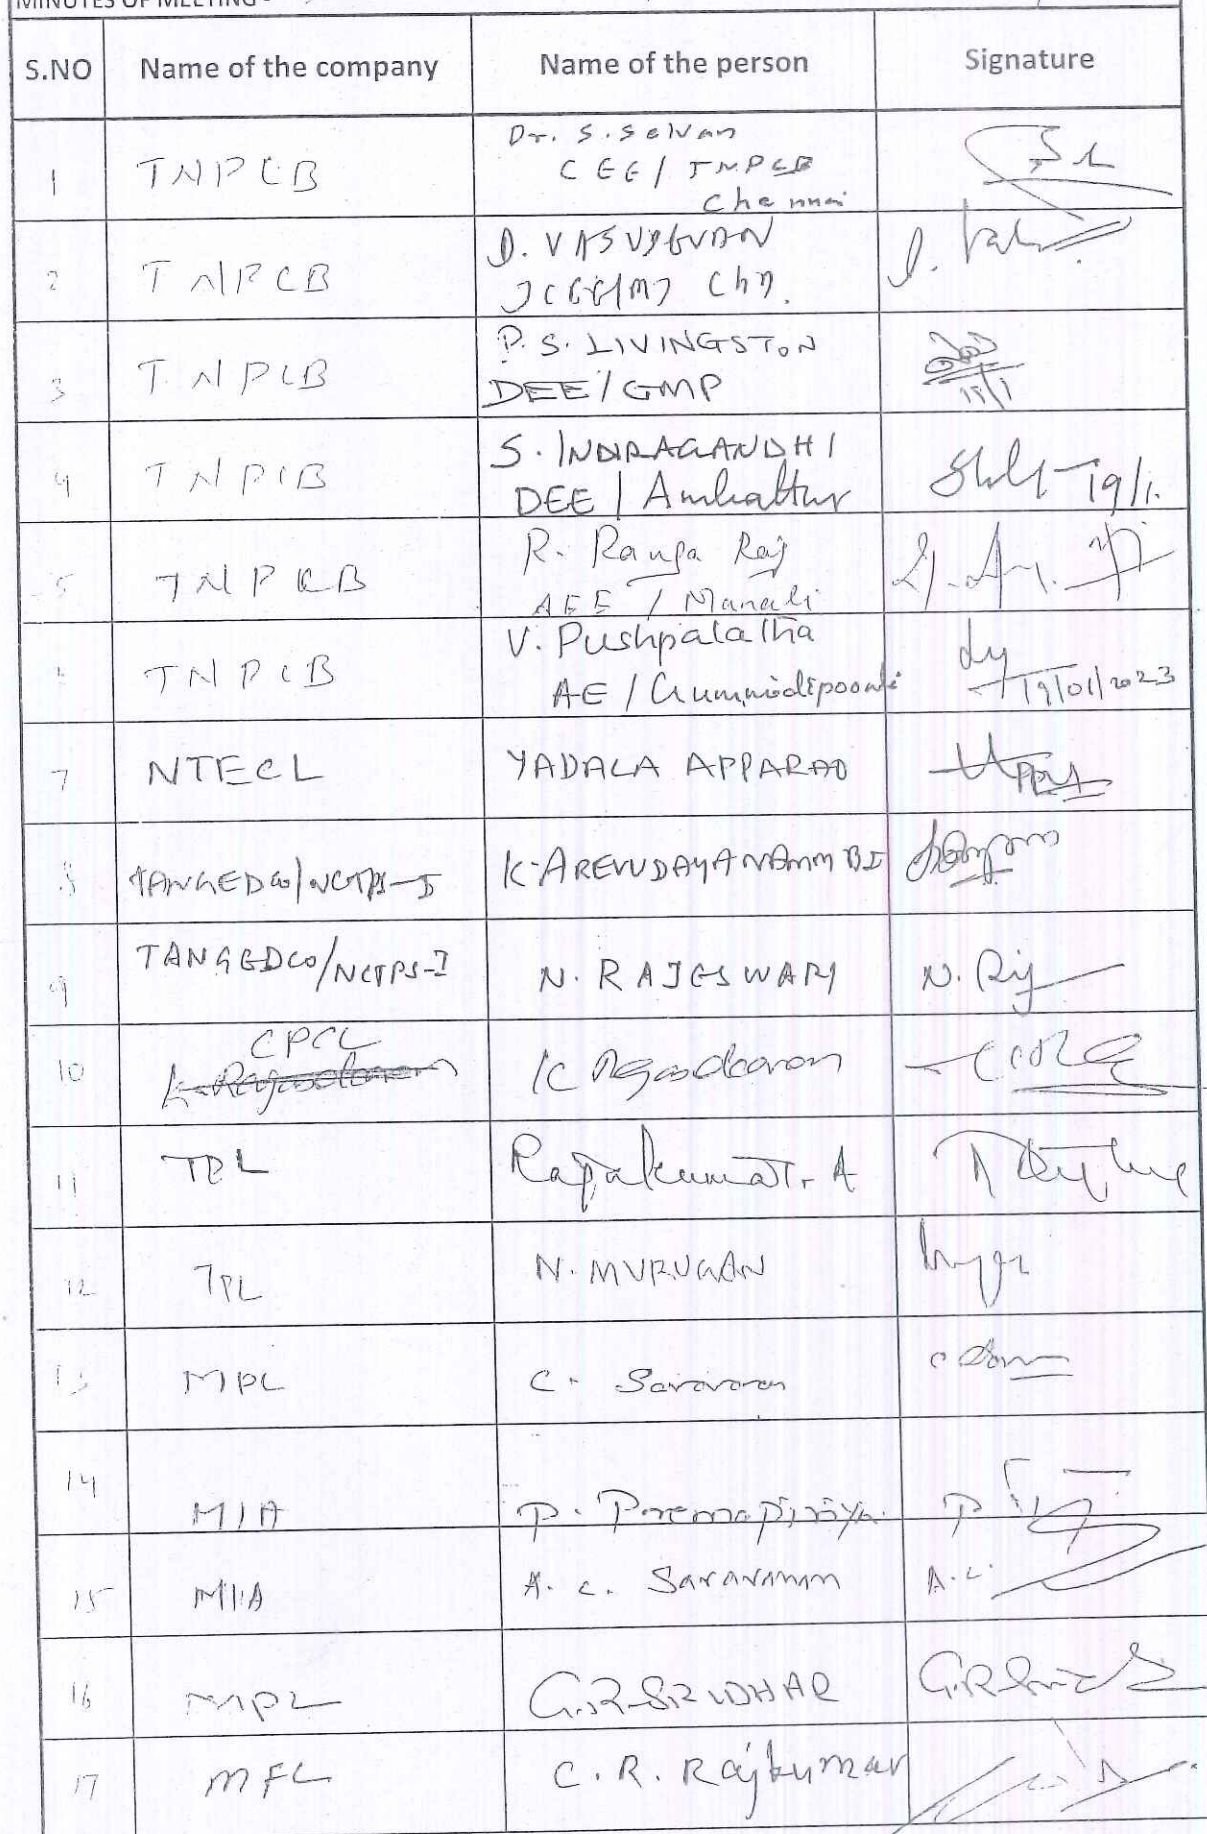 MINUTES OF MEETING -
S.NO Name of the company Name of the person Signature
1 TNPCB Dr. S. Selvan
CEE / TNPCB
Chennai
2 TNPCB D. VASUDEVAN
JCEE(M) Chn.
3 TNPCB P. S. LIVINGSTON
DEE / GMP
4 TNPCB S. INDIRAGANDHI
DEE / Ambattur 19/1.
5 TNPCB R. Ranga Raj
AEE / Manali
TNPCB V. Pushpalatha
AE / Gummidipoondi 19/01/2023
7 NTECL YADALA APPARAO
8 TANGEDCO/NCTPS-I K. AREVUDAYANAMMBI
9 TANGEDCO/NCTPS-I N. RAJESWARI N. Raj
10 CPCL K
11 TPL Rajakumar. A
12 TPL N. MURUGAN
13 MPL C. Saravanan
14 MIA P. Premapiriya.
15 MIA A. C. Saravanan A.C.
16 MPL G.R. SRIDHAR
17 MFL C. R. Rajkumar